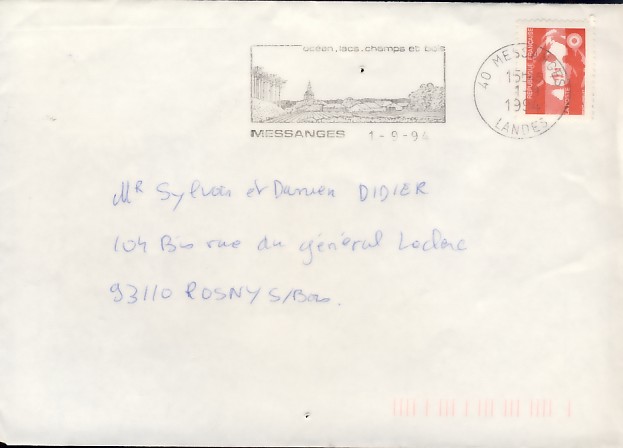 océan, lacs, champs et bois
MESSANGES 1-9-94
40 MESSANGES
LANDES
RÉPUBLIQUE FRANÇAISE
Mr Sylvain et Damien DIDIER
104 Bis rue du général Leclerc
93110 ROSNY S/Bois.